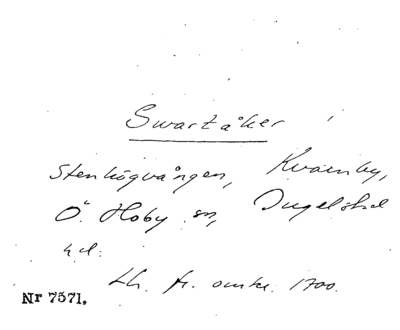 Swartåker
Stenhögvången, Kvarnby,
Ö. Hoby sn, Ingelstad
hd.
Lh. fr. omkr. 1700.
Nr 7571.